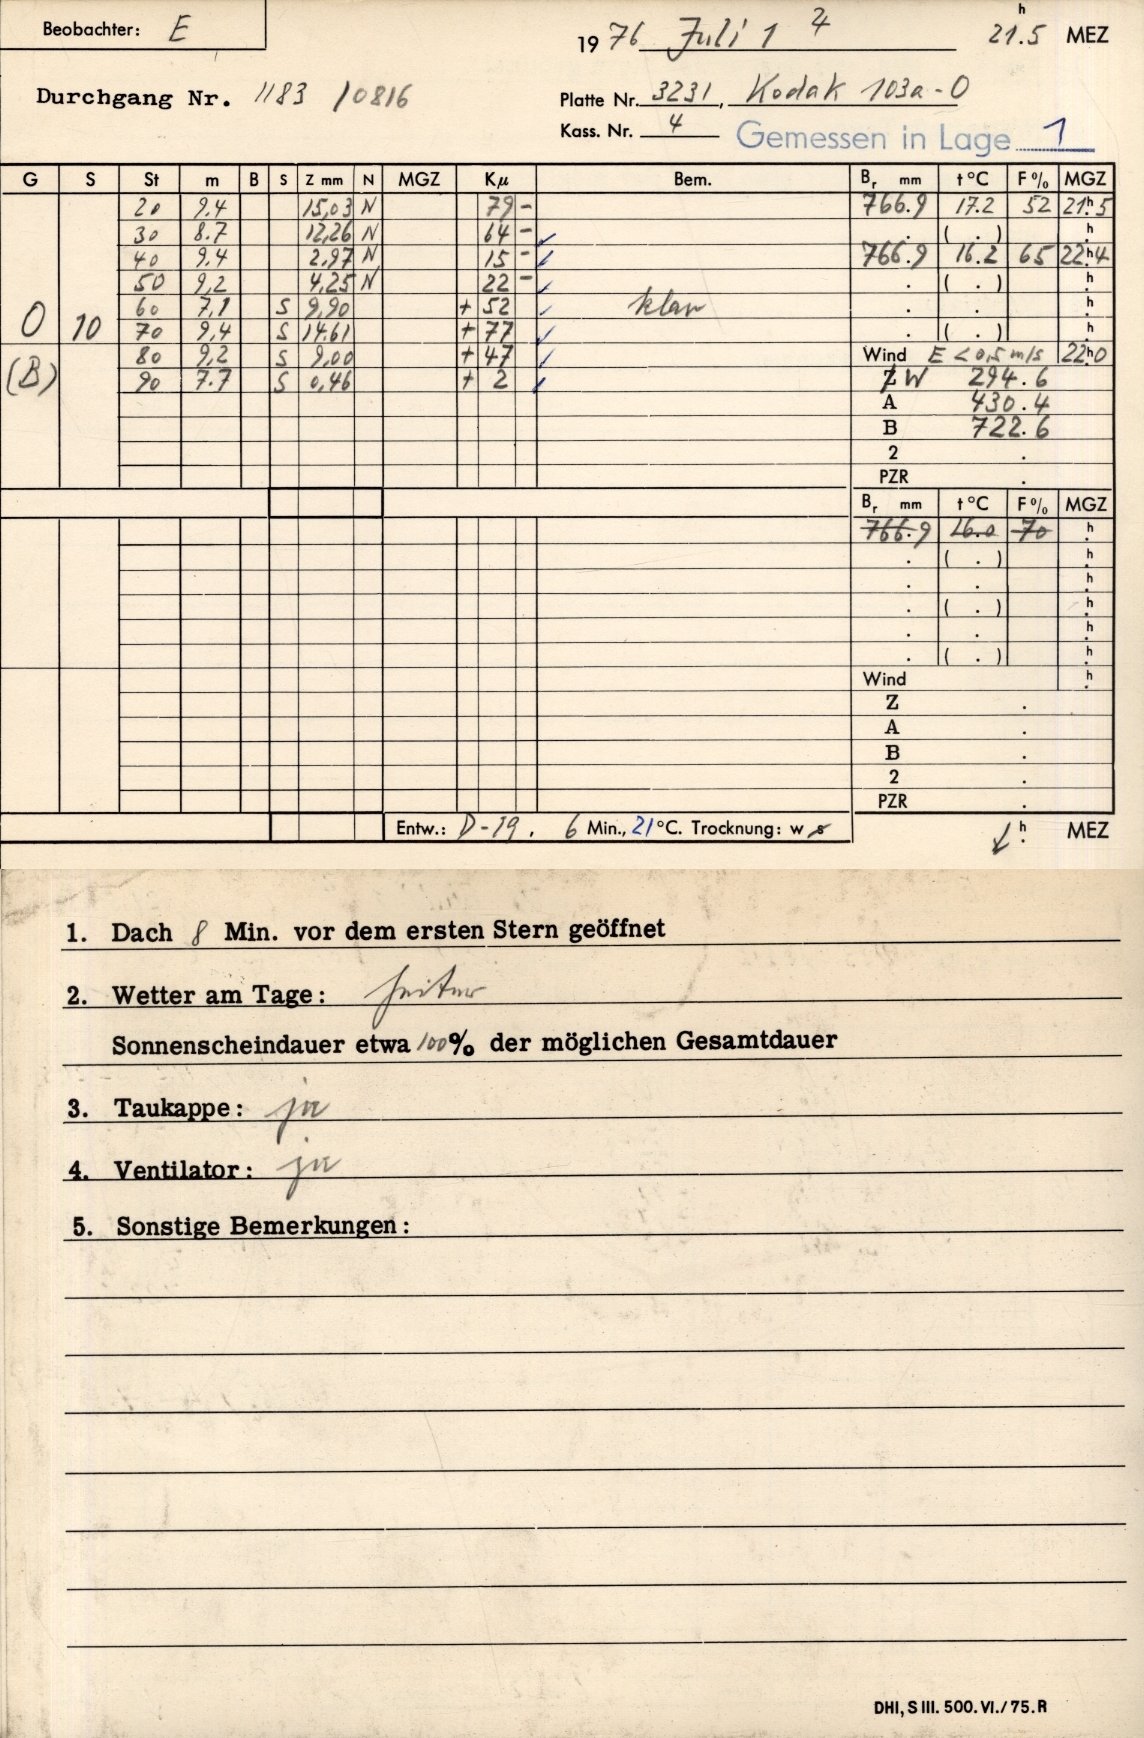 Beobachter: E
19 76 Juli 1 21.5 h MEZ
Durchgang Nr. 1183 /0816
Platte Nr. 3231, Kodak 103a-O
Kass. Nr. 4 Gemessen in Lage 1
G S St m B S Z mm N MGZ Kμ Bem. Br mm t °C F % MGZ
20 9.4 15,03 N 79 - 766.9 17.2 52 21h5
30 8.7 12,26 N 64 - ✓ . ( . ) h
40 9,4 2,97 N 15 - ✓ 766.9 16.2 65 22h4
50 9,2 4,25 N 22 - ✓ . ( . ) h
60 7,1 S 9,90 + 52 ✓ klar . . h
O 10 70 9,4 S 14.61 + 77 ✓ ( . ) h
(B) 80 9,2 S 9,00 + 47 ✓ Wind E < 0,5 m/s 22h0
90 7.7 S 0,46 + 2 ✓ Z W 294.6
A 430.4
B 722.6
2 .
PZR .
Br mm t °C F % MGZ
766.9 16.0 70 h
. ( . ) h
. . h
. ( . ) h
. . h
. ( . ) h
Wind h
Z .
A .
B .
2 .
PZR .
Entw.: D-19. 6 Min., 21 °C. Trocknung: w s
h MEZ
1. Dach 8 Min. vor dem ersten Stern geöffnet
2. Wetter am Tage: heiter
Sonnenscheindauer etwa 100% der möglichen Gesamtdauer
3. Taukappe: ja
4. Ventilator: ja
5. Sonstige Bemerkungen:
DHI, S III. 500. VI./75. R